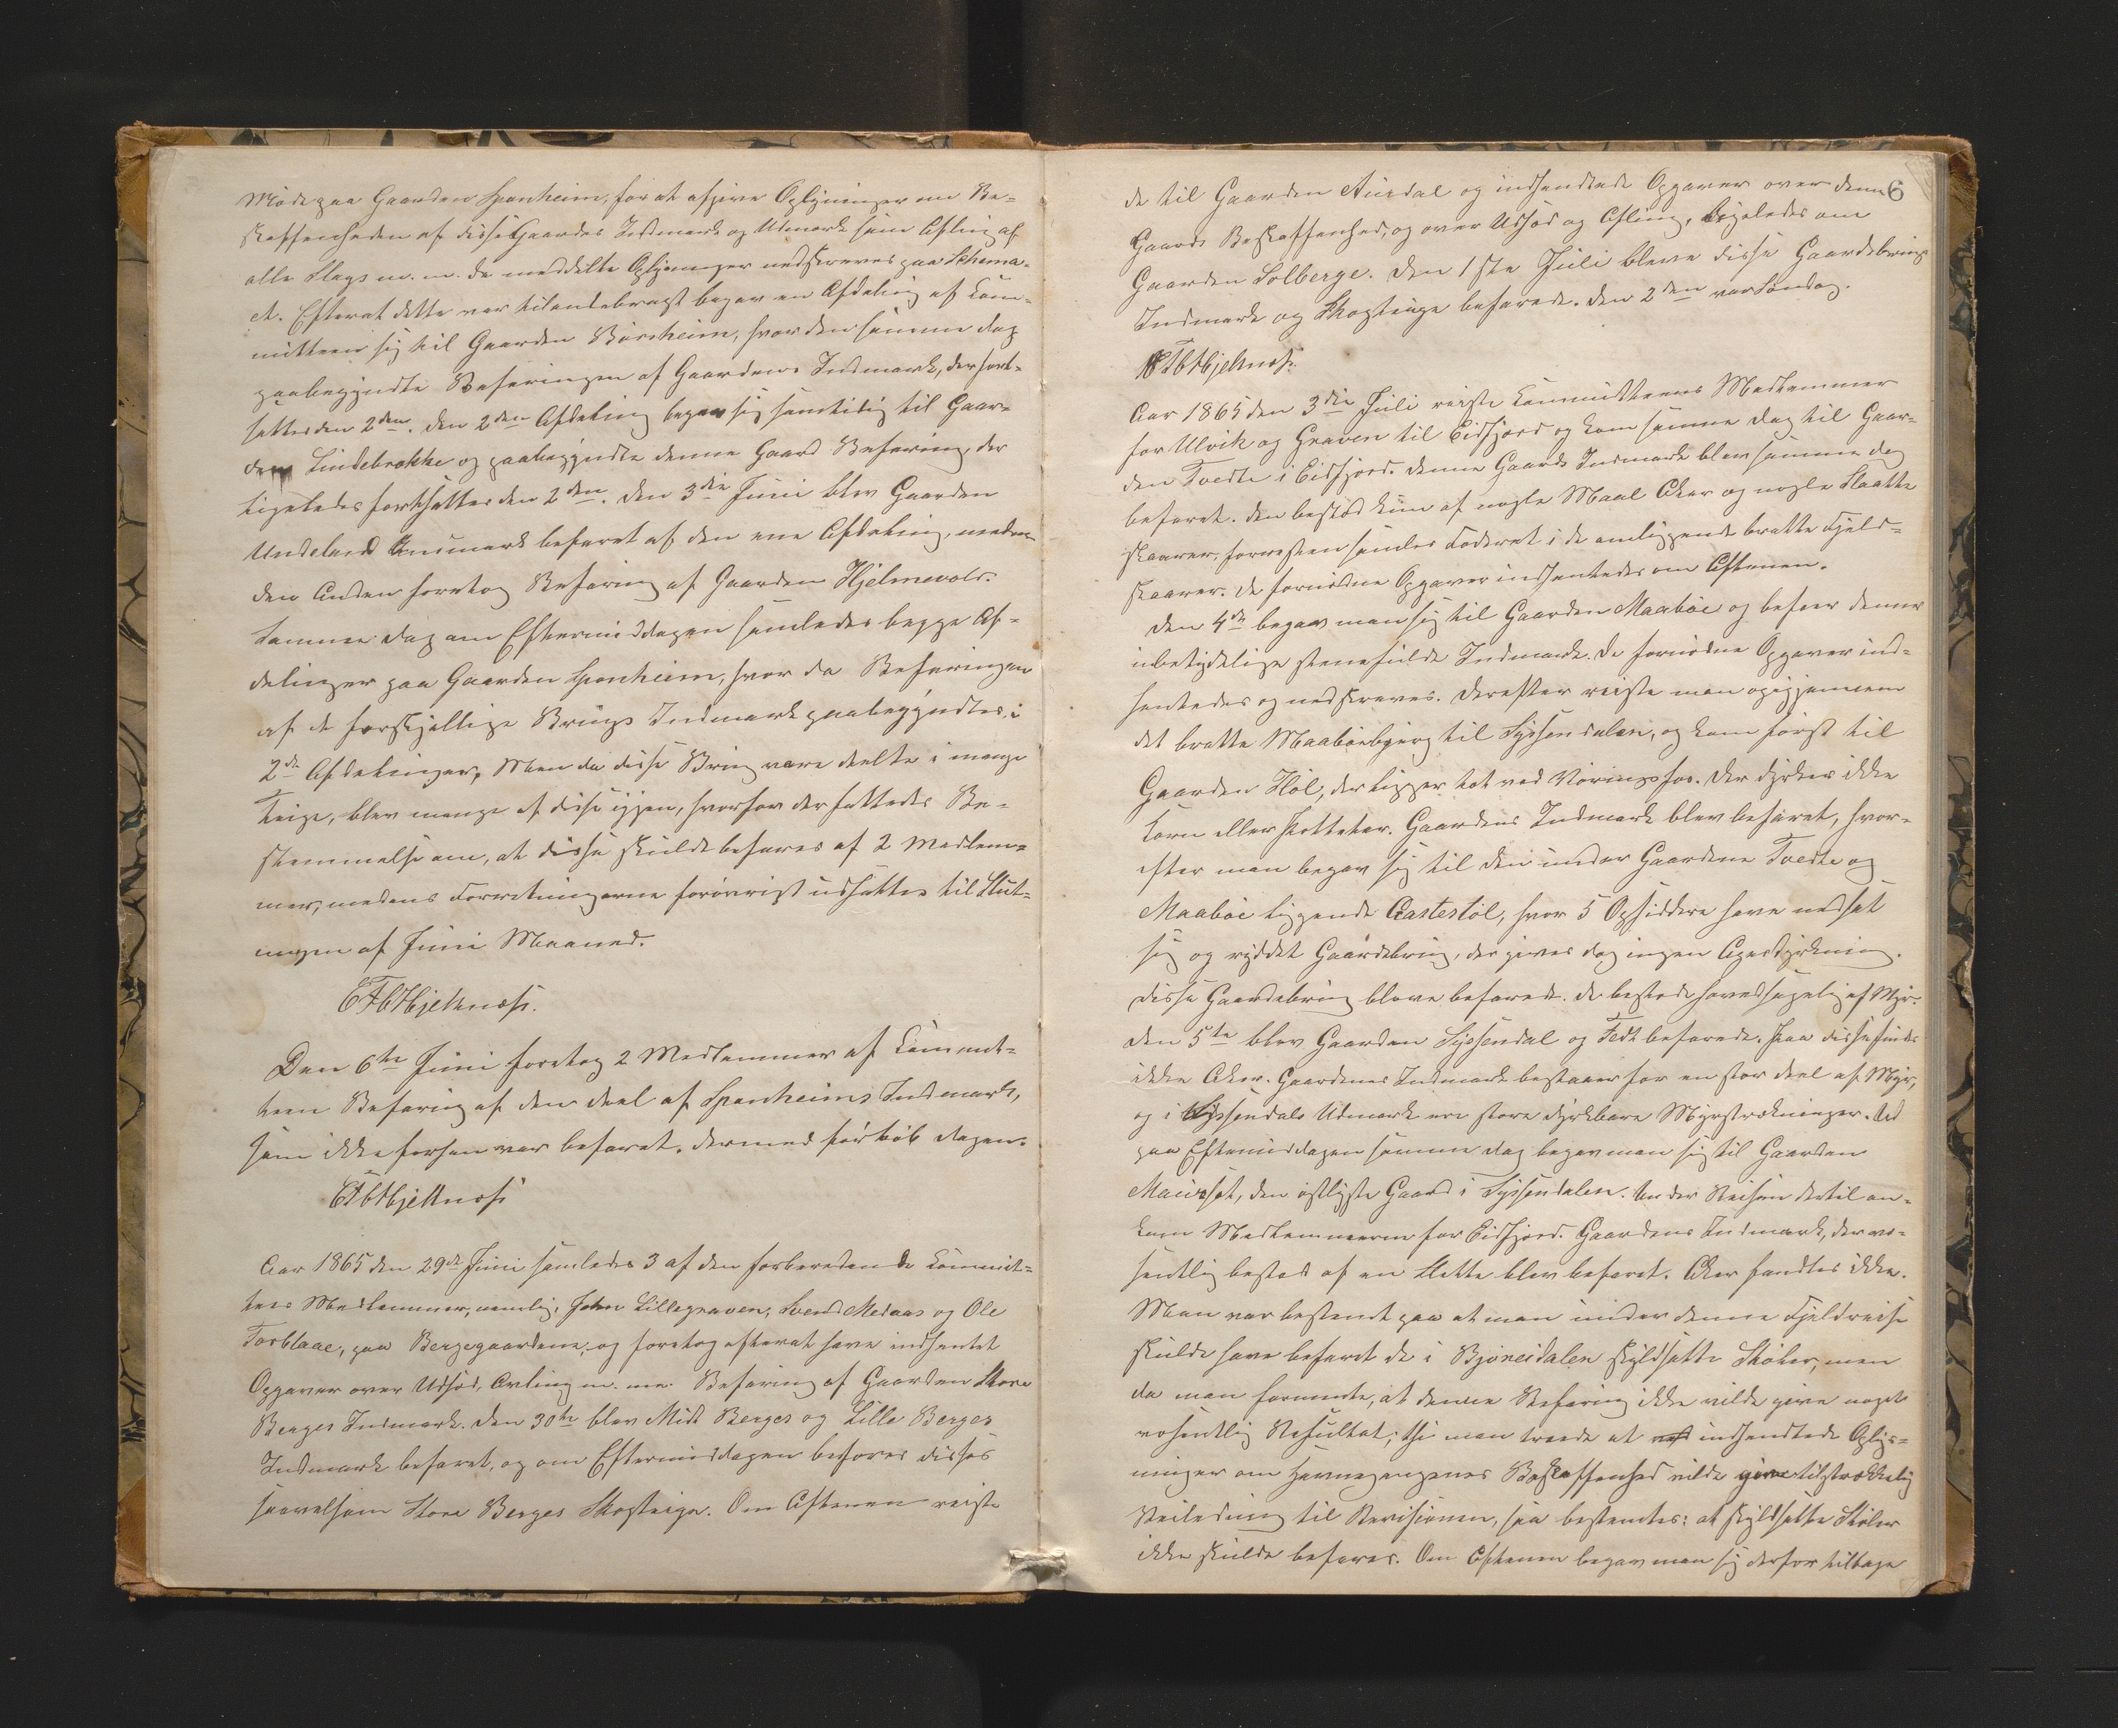 Møde paa Gaarden Spanheim, for at afgive Oplysninger om Be-
skaffenheden af disse Gaardes Indmark og Udmark samt Afling af
alle Slags m. m. De meddelte Oplysninger nedskreves paa Schema-
et. Efterat dette var tilendebragt begav en Afdeling af Com-
mitteen sig til Gaarden Børsheim, hvor den samme Dag
paabegyndte Befaringen af Gaardens Indmark, der fort-
sattes den 2den. Den 2den Afdeling begav sig samtidig til Gaar-
den Lindebrække og paabegyndte denne Gaard Befaring, der
ligeledes fortsattes den 2den. Den 3die Juni blev Gaarden
Undeland Indmark befaret af den ene Afdeling, medens
den Anden foretog Befaring af Gaarden Hjelmevold.
Samme Dag om Eftermiddagen samledes begge Af-
delinger paa Gaarden Spanheim, hvor da Befaringen
af de forskjellige Brugs Indmark paabegyndtes i
2de Afdelinger, Men da disse Brug vare deelte i mange
Teige, blev mange af disse igjen, hvorfor der fattedes Be-
stemmelse om, at disse skulde befares af 2 Medlem-
mer, medens Forretningerne forøvrigt udsattes til Slut-
ningen af Juni Maaned.
Hjeltnæs.
Den 6te Juni foretog 2 Medlemmer af Committ-
teen Befaring af den Deel af Spanheims Indmark,
som ikke forhen var befaret. Dermed forløb Dagen.
Hjeltnæs
Aar 1865 den 29de Juni samledes 3 af den forberedende Commit-
tees Medlemmer, nemlig, John Lillegraven, Svend Medaas og Ole
Torblaae, paa Bergegaardene, og foretog efterat have indhentet
Opgaver over Udsæd, Avling m. m. Befaring af Gaarden Store
Berges Indmark. Den 30te blev Midt Berges og Lille Berges
Indmark befaret, og om Eftermiddagen befares disses
saavelsom Store Berges Skogteige. Om Aftenen reiste
6
de til Gaarden Aurdal og indhentede Opgaver over denne
Gaards Beskaffenhed, og over Udsæd og Afling, ligeledes om
Gaarden Solberge. Den 1ste Juli bleve disse Gaardebrugs
Indmark og Skogteige befarede. Den 2den var Søndag.
Hjeltnæs.
Aar 1865 den 3die Juli reiste Committeens Medlemmer
for Ulvik og Graven til Eidfjord og kom samme Dag til Gaar-
den Tvedte i Eidfjord. Denne Gaards Indmark blev samme Dag
befaret. Den bestod kun af nogle Maal Aker og nogle Slaatte
skaarer, forresten samles Foderet i de omliggende bratte Fjeld-
skaarer. De fornødne Opgaver indhentedes om Aftenen.
Den 4de begav man sig til Gaarden Maabøe og befoer dennes
ubetydelige steenfulde Indmark. De fornødne Opgaver ind-
hentedes og nedskreves. Derefter reiste man opigjennem
det bratte Maabøebjerg til Syssendalen, og kom først til
Gaarden Høl, der ligger tæt ved Vøringsfos. Der dyrkes ikke
Korn eller Potteter. Gaardens Indmark blev befaret, hvor-
efter man begav sig til den under Gaardene Tvedte og
Maabøe liggende Gastestøl, hvor 5 Opsiddere have nedsat
sig og ryddet Gaardebrug, der gives dog ingen Agerdyrkning.
Disse Gaardebrug bleve befarede. De bestode hovedsagelig af Myr.
Den 5te blev Gaarden Syssendal og Fedt befarede. Paa disse findes
ikke Aker. Gaardenes Indmark bestaaer for en stor Deel af Myr,
og i Syssendals Udmark ere store dyrkbare Myrstrækninger. Ud
paa Eftermiddagen samme Dag begav man sig til Gaarden
Maurset, den østligste Gaard i Syssendalen. Under Reisen dertil an-
kom Medlemmerne for Eidfjord. Gaardens Indmark, der væ-
sentlig bestod af en Slette blev befaret. Aker fandtes ikke.
Man var bestemt paa at man under denne Fjeldreise
skulde have befaret de i Bjøreidalen skyldsatte Støler, men
da man formente, at denne Befaring ikke vilde give noget
væsentlig Resultat; thi man troede at indhentede Oplys-
ninger om Havnegangenes Beskaffenhed vilde give tilstrækkelig
Veiledning til Revisionen, saa bestemtes: at skyldsatte Støler
ikke skulde befares. Om Aftenen begav man sig derfor tilbage